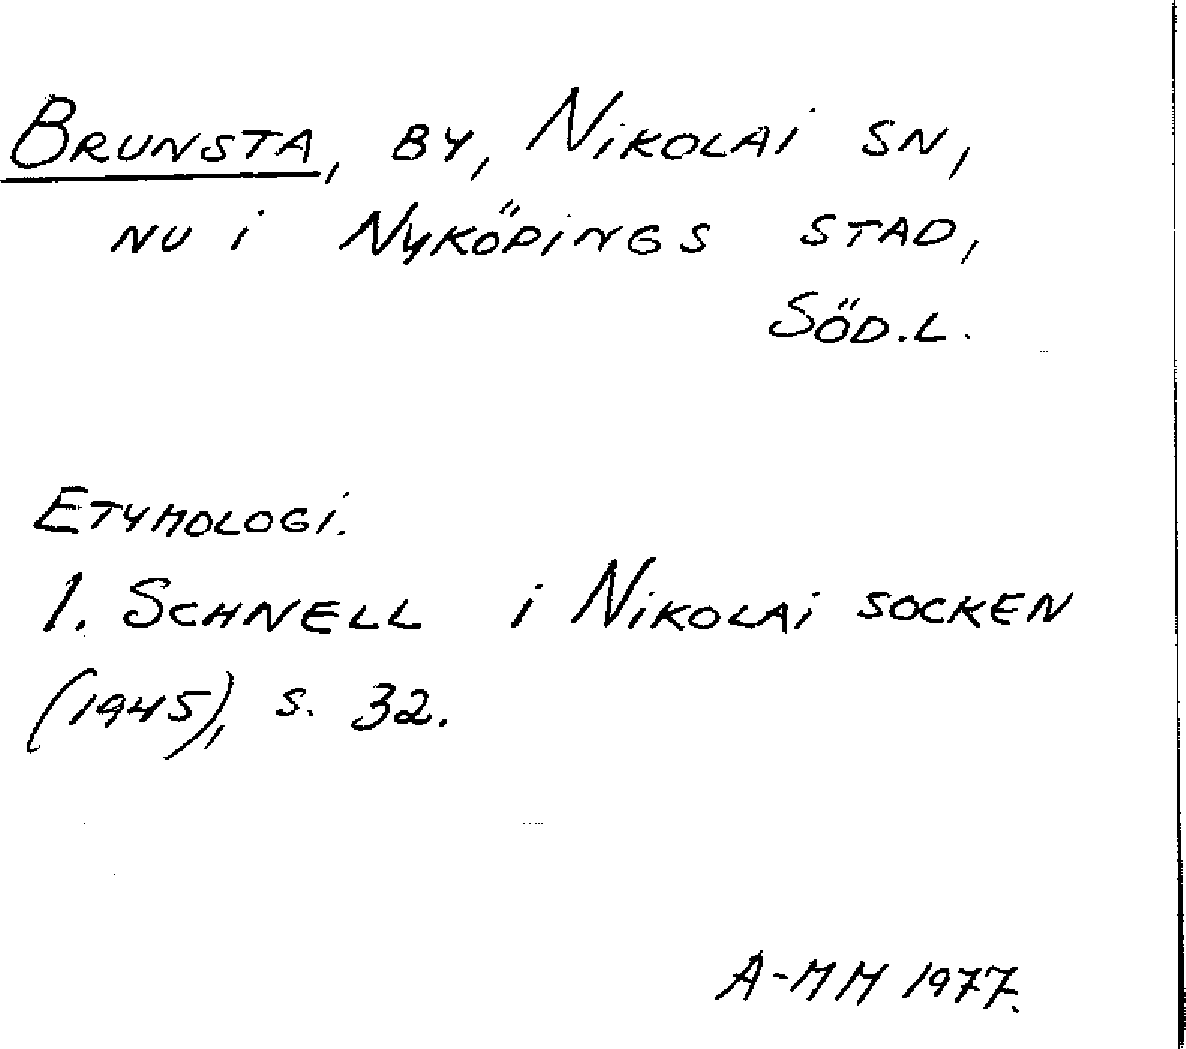 BRUNSTA, BY, NIKOLAI SN,
NU I NYKÖPINGS STAD,
SÖD.L.
ETYMOLOGI.
1. SCHNELL I NIKOLAI SOCKEN
(1945), S. 32.
A-MM 1977.